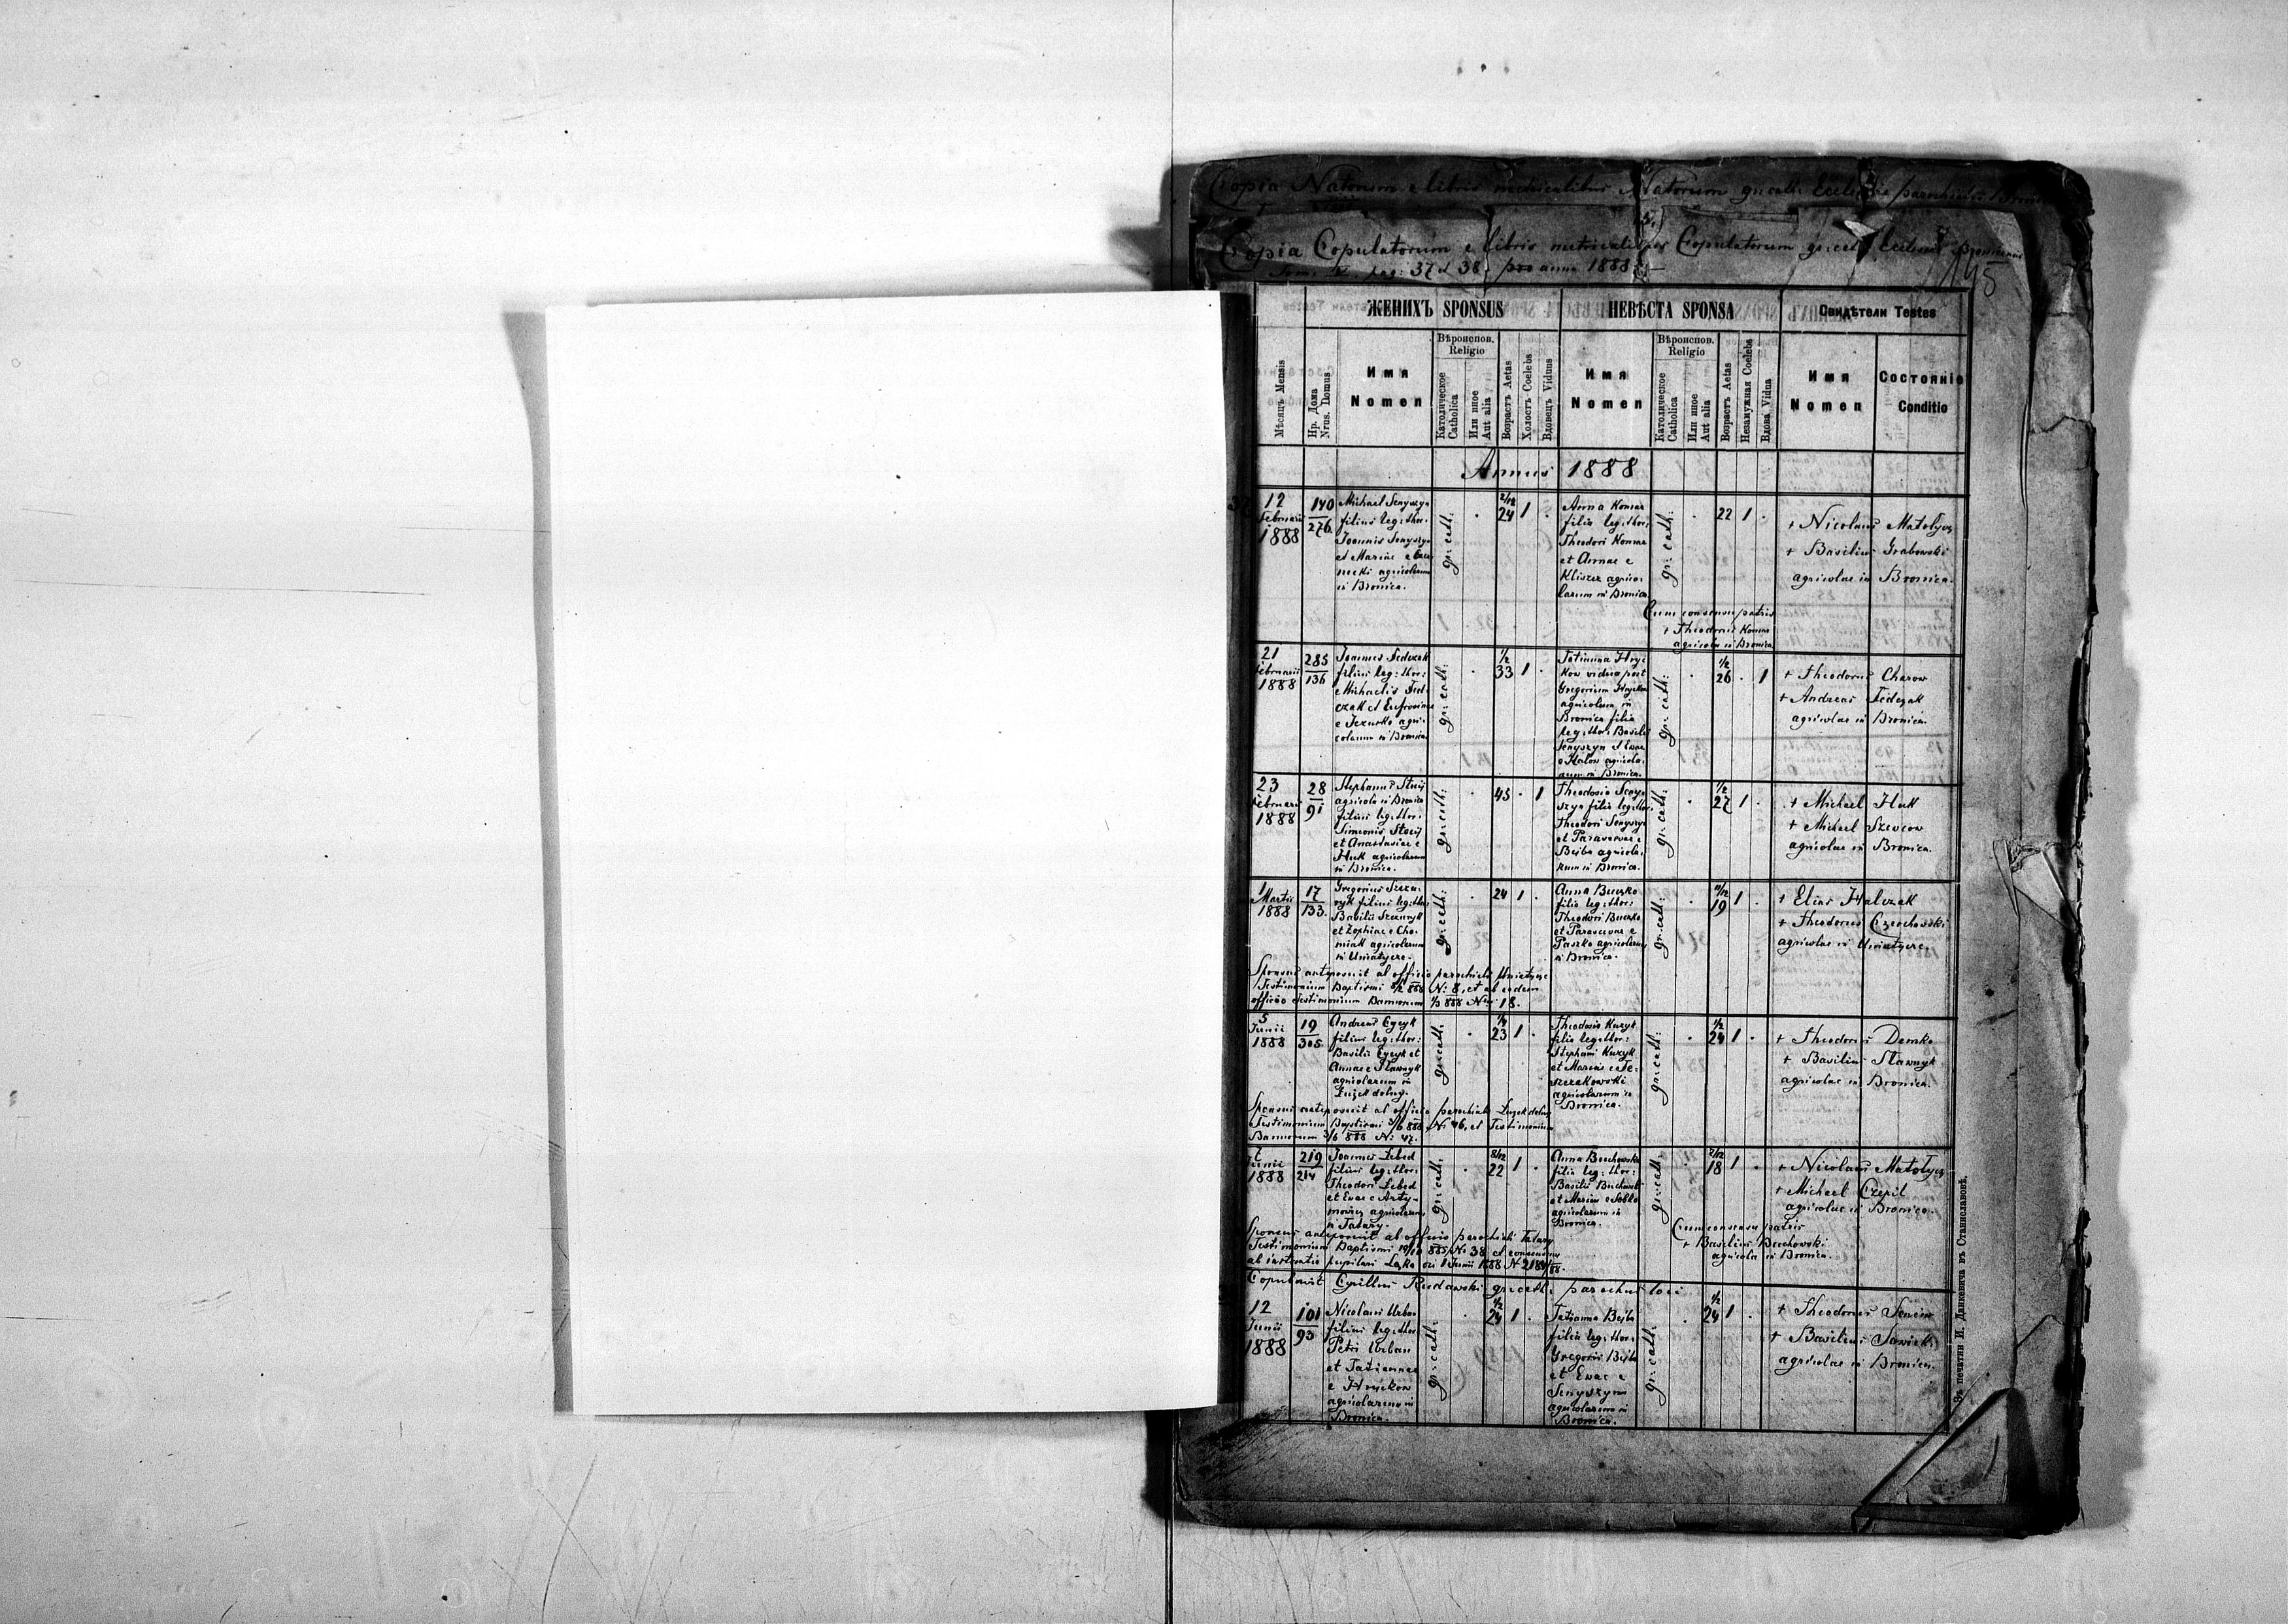 Copia Natorum e libris metricalibus Natorum gr: cath: Ecclesiae parochialis
Copia Copulatorum e libris metricalibus Copulatorum gr: cath: Ecclesiae Bronicensis
Tom: pag: 37 et 38 pro anno 1888.
145
ЖЕНИХЪ SPONSUS
НЕВѢСТА SPONSA
Свидѣтели Testes
Мѣсяцъ Mensis
Нр. Дома
Nrus. Domus
Имя
Nomen
Вѣроиспов.
Religio
Католическое
Catholica
Или иное
Aut alia
Возрастъ Aetas
Холостъ Coelebs
Вдовецъ Viduus
Имя
Nomen
Вѣроиспов.
Religio
Католическое
Catholica
Или иное
Aut alia
Возрастъ Aetas
Незамужная Coelebs
Вдова Vidua
Имя
Nomen
Состояніе
Conditio
Annus 1888
12
Februarii
1888
140
276
Michael Senyszyn
filius leg: thor:
Joannis Senyszyn
et Mariae e
agricolarum
in Bronica.
gr: cath:
2/12
24
1
Anna Komar
filia leg: thor:
Theodori Komar
et Annae e
Kliszcz agrico-
larum in Bronica
gr: cath:
22
1
Cum consensu patris
+ Theodorus Komar
agricola in Bronica
+ Nicolaus Matołycz
+ Basilius Grabowski
agricolae in Bronica.
21
Februarii
1888
285
136
Joannes Fedczak
filius leg: thor:
Michaelis Fed-
czak et Eufrosinae
e agri-
colarum in Bronica
gr: cath:
1/2
33
1
Tatianna Hryc-
kow vidua post
Gregorium Hryckow
agricolam in
Bronica filia
leg: thor: Basilii
Senyszyn et Evae
e Halow agricola-
rum in Bronica.
gr: cath:
1/2
26
1
+ Theodorus Charow
+ Andreas Fedczak
agricolae in Bronica
23
Februarii
1888
28
91
Stephanus
agricola in Bronica
filius leg: thor:
Simeonis
et Anastasiae e
Huk agricolarum
in Bronica.
gr: cath:
45
1
Theodosia Seny-
szyn filia leg: thor:
Theodori Senyszyn
et Parascevae e
Bejba agricola-
rum in Bronica.
gr: cath:
1/2
27
1
+ Michael Huk
+ Michael Szewcow
agricolae in Bronica.
1
Martii
1888
17
133.
Gregorius Szczu-
ryk filius leg: thor:
Basilii Szczuryk
et Zophiae e Cho-
miak agricolarum
in Uniatycze.
gr: cath:
24
1
Anna Buczko
filia leg: thor:
Theodori Buczko
et Parascevae e
Paszko agricolarum
in Bronica.
gr: cath:
11/12
19
1
+ Elias Halczak
+ Theodorus Czechowski
agricolae in Uniatycze.
Sponsus anteposuit ab officio parochiali Uniatycze
Testimonium Baptismi 888 N: 8, et ab eodem
officio Testimonium Bannorum 888 Nr: 18.
5
Junii
1888
19
305
Andreas Cycyk
filius leg: thor:
Basilii Cycyk et
Annae e Sławnyk
agricolarum in
Łużek dolny.
gr: cath:
1/4
23
1
Theodosia Kuzyk
filia leg: thor:
Stephani Kuzyk
et Mariae e Te-
szczakowski
agricolarum in
Bronica.
gr: cath:
1/2
24
1
+ Theodorus Demko
+ Basilius Sławnyk
agricolae in Bronica.
Sponsus anteposuit ab officio parochiali Łużek dolny
Testimonium Baptismi 3/6 888 N: 46, et Testimonium
Bannorum 3/6 888 N: 47.
Junii
1888
219
214
Joannes Łebed
filius leg: thor:
Theodori Łebed
et Evae e Arty-
mowicz agricolarum
in Tatary.
gr: cath:
8/12
22
1
Anna Bochowska
filia leg: thor:
Basilii
et Mariae e Sobko
agricolarum in
Bronica.
gr: cath:
2/12
18
1
+ Nicolaus Matołycz
+ Michael Czepil
agricolae in Bronica.
Cum consensu patris
+ Basilius Bochowski
agricola in Bronica.
Sponsus anteposuit ab officio parochiali Tatary
Testimonium Baptismi 885 N: 38 et consensum
ab instantia pupilari Łąka Junii 1888
Copulavit Cyrillus Rudawski gr: cath: parochus loci
12
Junii
1888
101
93
Nicolaus Urban
filius leg: thor:
Petri Urban
et Tatiannae
e Hryckow
agricolarum in
Bronica.
gr: cath:
1/2
24
1
Tatianna Bejba
filia leg: thor:
Gregorii Bejba
et Evae e
Senyszyn
agricolarum in
Bronica.
gr: cath:
1/2
24
1
+ Theodorus
+ Basilius Sawicki
agricolae in Bronica.
Зъ печатни И. Данкевича въ Станиславовѣ.